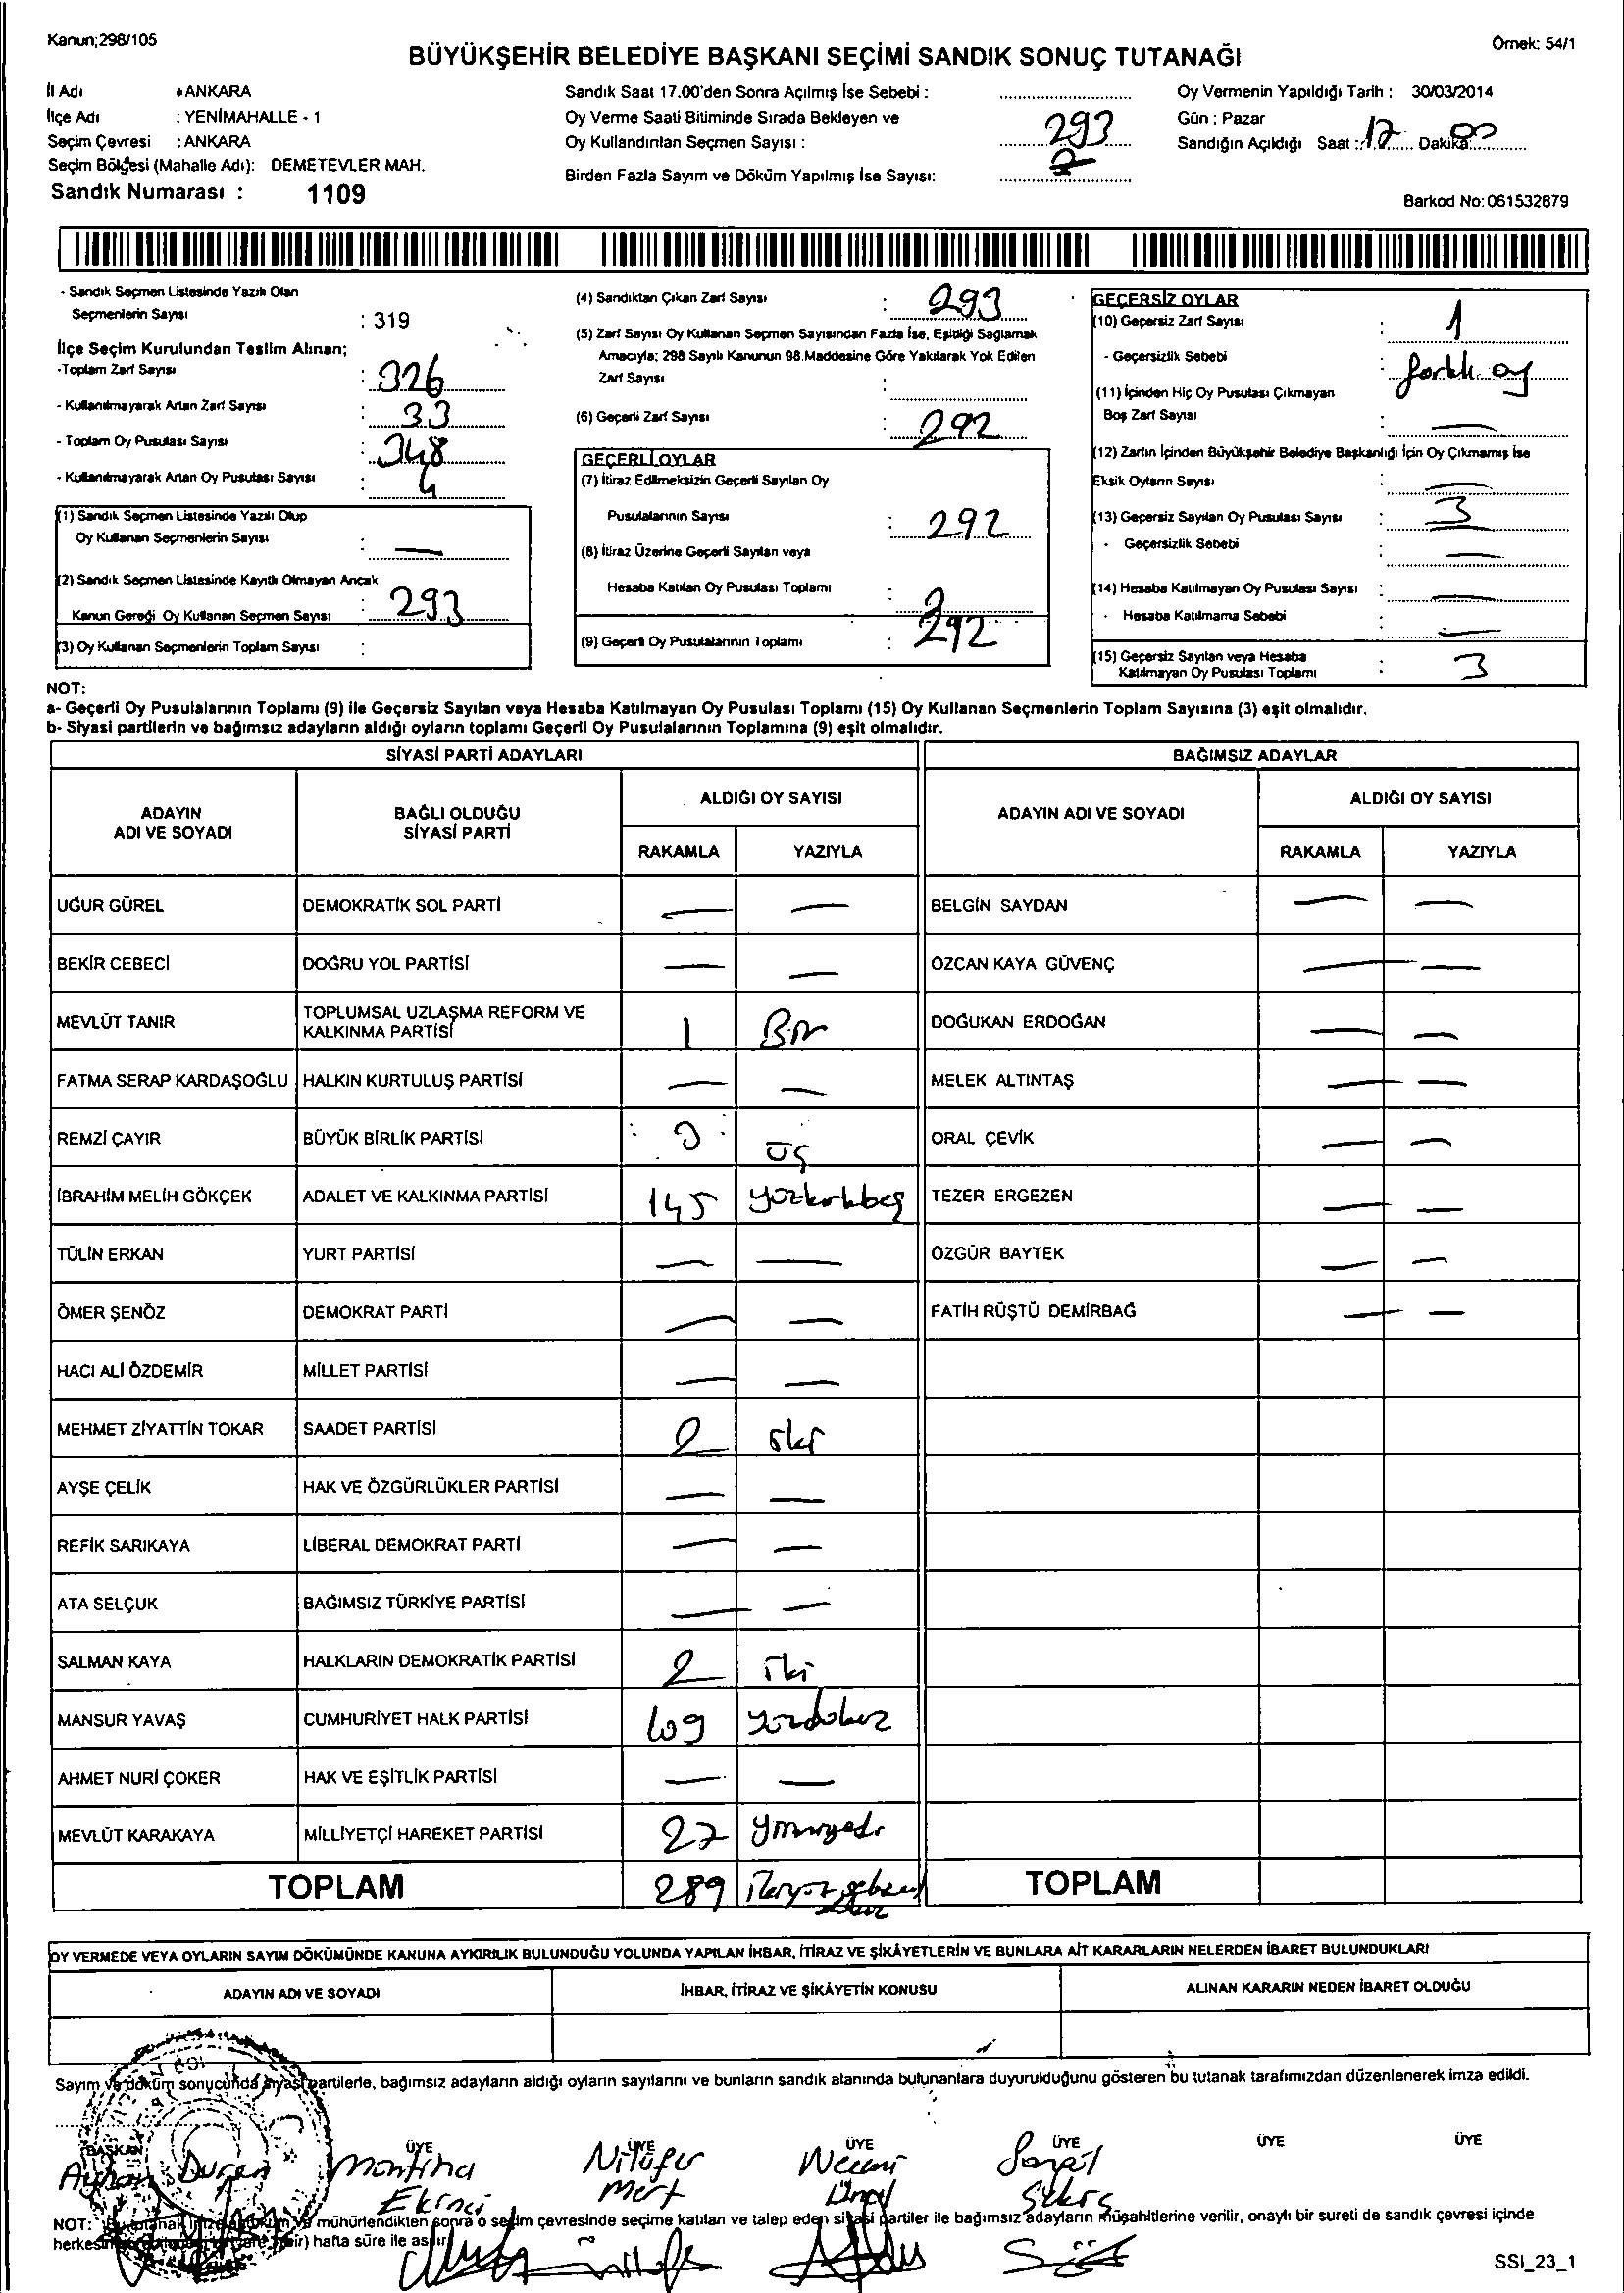 Kanun;298/105
Örnek: 54/1
BÜYÜKŞEHİR BELEDİYE BAŞKANI SEÇİMİ SANDIK SONUÇ TUTANAĞI
İl Adı : ANKARA
İlçe Adı : YENİMAHALLE - 1
Seçim Çevresi : ANKARA
Seçim Bölgesi (Mahalle Adı): DEMETEVLER MAH.
Sandık Numarası : 1109
Sandık Saat 17.00'den Sonra Açılmış İse Sebebi :
Oy Verme Saati Bitiminde Sırada Bekleyen ve
Oy Kullandırılan Seçmen Sayısı : 293
Birden Fazla Sayım ve Döküm Yapılmış İse Sayısı:
Oy Vermenin Yapıldığı Tarih : 30/03/2014
Gün : Pazar
Sandığın Açıldığı Saat : 17 Dakika 00
Barkod No:061532879
- Sandık Seçmen Listesinde Yazılı Olan
Seçmenlerin Sayısı : 319
İlçe Seçim Kurulundan Teslim Alınan;
-Toplam Zarf Sayısı : 326
- Kullanılmayarak Artan Zarf Sayısı : 33
- Toplam Oy Pusulası Sayısı : 348
- Kullanılmayarak Artan Oy Pusulası Sayısı : 4
(1) Sandık Seçmen Listesinde Yazılı Olup
Oy Kullanan Seçmenlerin Sayısı : —
(2) Sandık Seçmen Listesinde Kayıtlı Olmayan Ancak
Kanun Gereği Oy Kullanan Seçmen Sayısı : 293
(3) Oy Kullanan Seçmenlerin Toplam Sayısı :
(4) Sandıktan Çıkan Zarf Sayısı : 293
(5) Zarf Sayısı Oy Kullanan Seçmen Sayısından Fazla İse, Eşitliği Sağlamak
Amacıyla; 298 Sayılı Kanunun 98.Maddesine Göre Yakılarak Yok Edilen
Zarf Sayısı :
(6) Geçerli Zarf Sayısı : 292
GEÇERLİ OYLAR
(7) İtiraz Edilmeksizin Geçerli Sayılan Oy
Pusulalarının Sayısı : 292
(8) İtiraz Üzerine Geçerli Sayılan veya
Hesaba Katılan Oy Pusulası Toplamı :
(9) Geçerli Oy Pusulalarının Toplamı : 292
GEÇERSİZ OYLAR
(10) Geçersiz Zarf Sayısı : 1
- Geçersizlik Sebebi : farklı oy
(11) İçinden Hiç Oy Pusulası Çıkmayan
Boş Zarf Sayısı : —
(12) Zarfın İçinden Büyükşehir Belediye Başkanlığı İçin Oy Çıkmamış İse
Eksik Oyların Sayısı : —
(13) Geçersiz Sayılan Oy Pusulası Sayısı : 3
- Geçersizlik Sebebi : —
(14) Hesaba Katılmayan Oy Pusulası Sayısı : —
- Hesaba Katılmama Sebebi : —
(15) Geçersiz Sayılan veya Hesaba
Katılmayan Oy Pusulası Toplamı : 3
NOT:
a- Geçerli Oy Pusulalarının Toplamı (9) ile Geçersiz Sayılan veya Hesaba Katılmayan Oy Pusulası Toplamı (15) Oy Kullanan Seçmenlerin Toplam Sayısına (3) eşit olmalıdır.
b- Siyasi partilerin ve bağımsız adayların aldığı oyların toplamı Geçerli Oy Pusulalarının Toplamına (9) eşit olmalıdır.
SİYASİ PARTİ ADAYLARI
ADAYIN ADI VE SOYADI BAĞLI OLDUĞU SİYASİ PARTİ ALDIĞI OY SAYISI RAKAMLA YAZIYLA
UĞUR GÜREL DEMOKRATİK SOL PARTİ — —
BEKİR CEBECİ DOĞRU YOL PARTİSİ — —
MEVLÜT TANIR TOPLUMSAL UZLAŞMA REFORM VE KALKINMA PARTİSİ 1 Bir
FATMA SERAP KARDAŞOĞLU HALKIN KURTULUŞ PARTİSİ — —
REMZİ ÇAYIR BÜYÜK BİRLİK PARTİSİ 3 üç
İBRAHİM MELİH GÖKÇEK ADALET VE KALKINMA PARTİSİ 145 yüzkırkbeş
TÜLİN ERKAN YURT PARTİSİ — —
ÖMER ŞENÖZ DEMOKRAT PARTİ — —
HACI ALİ ÖZDEMİR MİLLET PARTİSİ — —
MEHMET ZİYATTİN TOKAR SAADET PARTİSİ 2 iki
AYŞE ÇELİK HAK VE ÖZGÜRLÜKLER PARTİSİ — —
REFİK SARIKAYA LİBERAL DEMOKRAT PARTİ — —
ATA SELÇUK BAĞIMSIZ TÜRKİYE PARTİSİ — —
SALMAN KAYA HALKLARIN DEMOKRATİK PARTİSİ 2 iki
MANSUR YAVAŞ CUMHURİYET HALK PARTİSİ 109 yüzdokuz
AHMET NURİ ÇOKER HAK VE EŞİTLİK PARTİSİ — —
MEVLÜT KARAKAYA MİLLİYETÇİ HAREKET PARTİSİ 27 yirmiyedi
TOPLAM 289 ikiyüzseksen dokuz
BAĞIMSIZ ADAYLAR
ADAYIN ADI VE SOYADI ALDIĞI OY SAYISI RAKAMLA YAZIYLA
BELGİN SAYDAN — —
ÖZCAN KAYA GÜVENÇ — —
DOĞUKAN ERDOĞAN — —
MELEK ALTINTAŞ — —
ORAL ÇEVİK — —
TEZER ERGEZEN — —
ÖZGÜR BAYTEK — —
FATİH RÜŞTÜ DEMİRBAĞ — —
TOPLAM
OY VERMEDE VEYA OYLARIN SAYIM DÖKÜMÜNDE KANUNA AYKIRILIK BULUNDUĞU YOLUNDA YAPILAN İHBAR, İTİRAZ VE ŞİKÂYETLERİN VE BUNLARA AİT KARARLARIN NELERDEN İBARET BULUNDUKLARI
ADAYIN ADI VE SOYADI İHBAR, İTİRAZ VE ŞİKÂYETİN KONUSU ALINAN KARARIN NEDEN İBARET OLDUĞU
Sayım ve döküm sonucunda siyasi partilerle, bağımsız adayların aldığı oyların sayılarını ve bunların sandık alanında bulunanlara duyurulduğunu gösteren bu tutanak tarafımızdan düzenlenerek imza edildi.
BAŞKAN ÜYE ÜYE ÜYE ÜYE ÜYE ÜYE
Ayhan Duran Nilüfer
Ekinci Mert Ünal
NOT: mühürlendikten sonra o seçim çevresinde seçime katılan ve talep eden siyasi partiler ile bağımsız adayların müşahitlerine verilir, onaylı bir sureti de sandık çevresi içinde
hafta süre ile asılır.
SSI_23_1